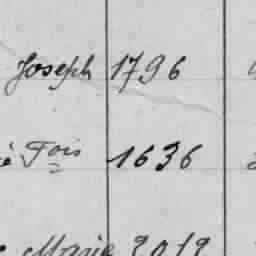 Joseph 1796
é Fois 1636
Marie 2012